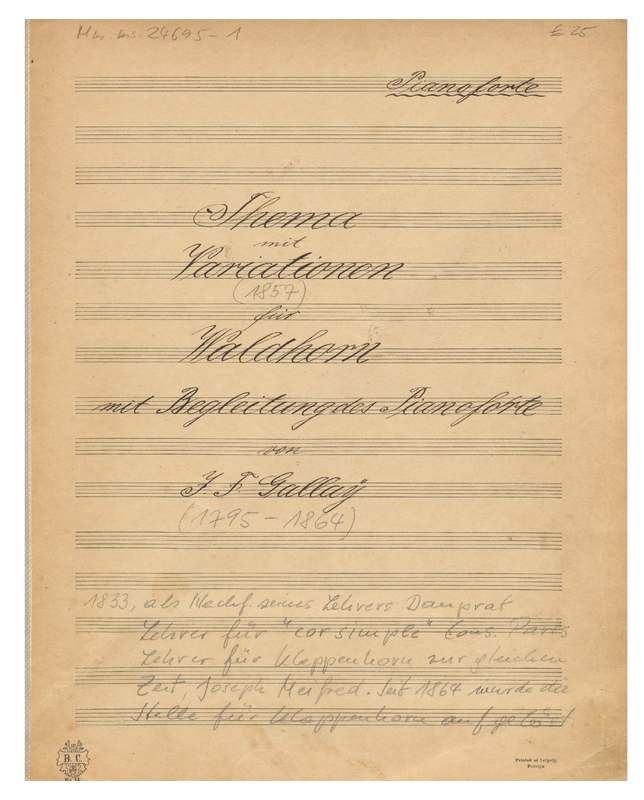 Mus. ms. 24695-1
£ 25
Pianoforte
Thema
mit
Variationen
(1857)
für
Waldhorn
mit Begleitung des Pianoforte
von
J. F. Gallaÿ
(1795 - 1864)
1833, als Nachf. seines Lehrers Dauprat
Lehrer für "cor simple" Cons. Paris
Lehrer für Klappenhorn zur gleichen
Zeit, Joseph Meifred. Seit 1864 wurde die
Stelle für Klappenhorn aufgelöst
B. C.
No. 14
Printed at Leipzig
Foreign